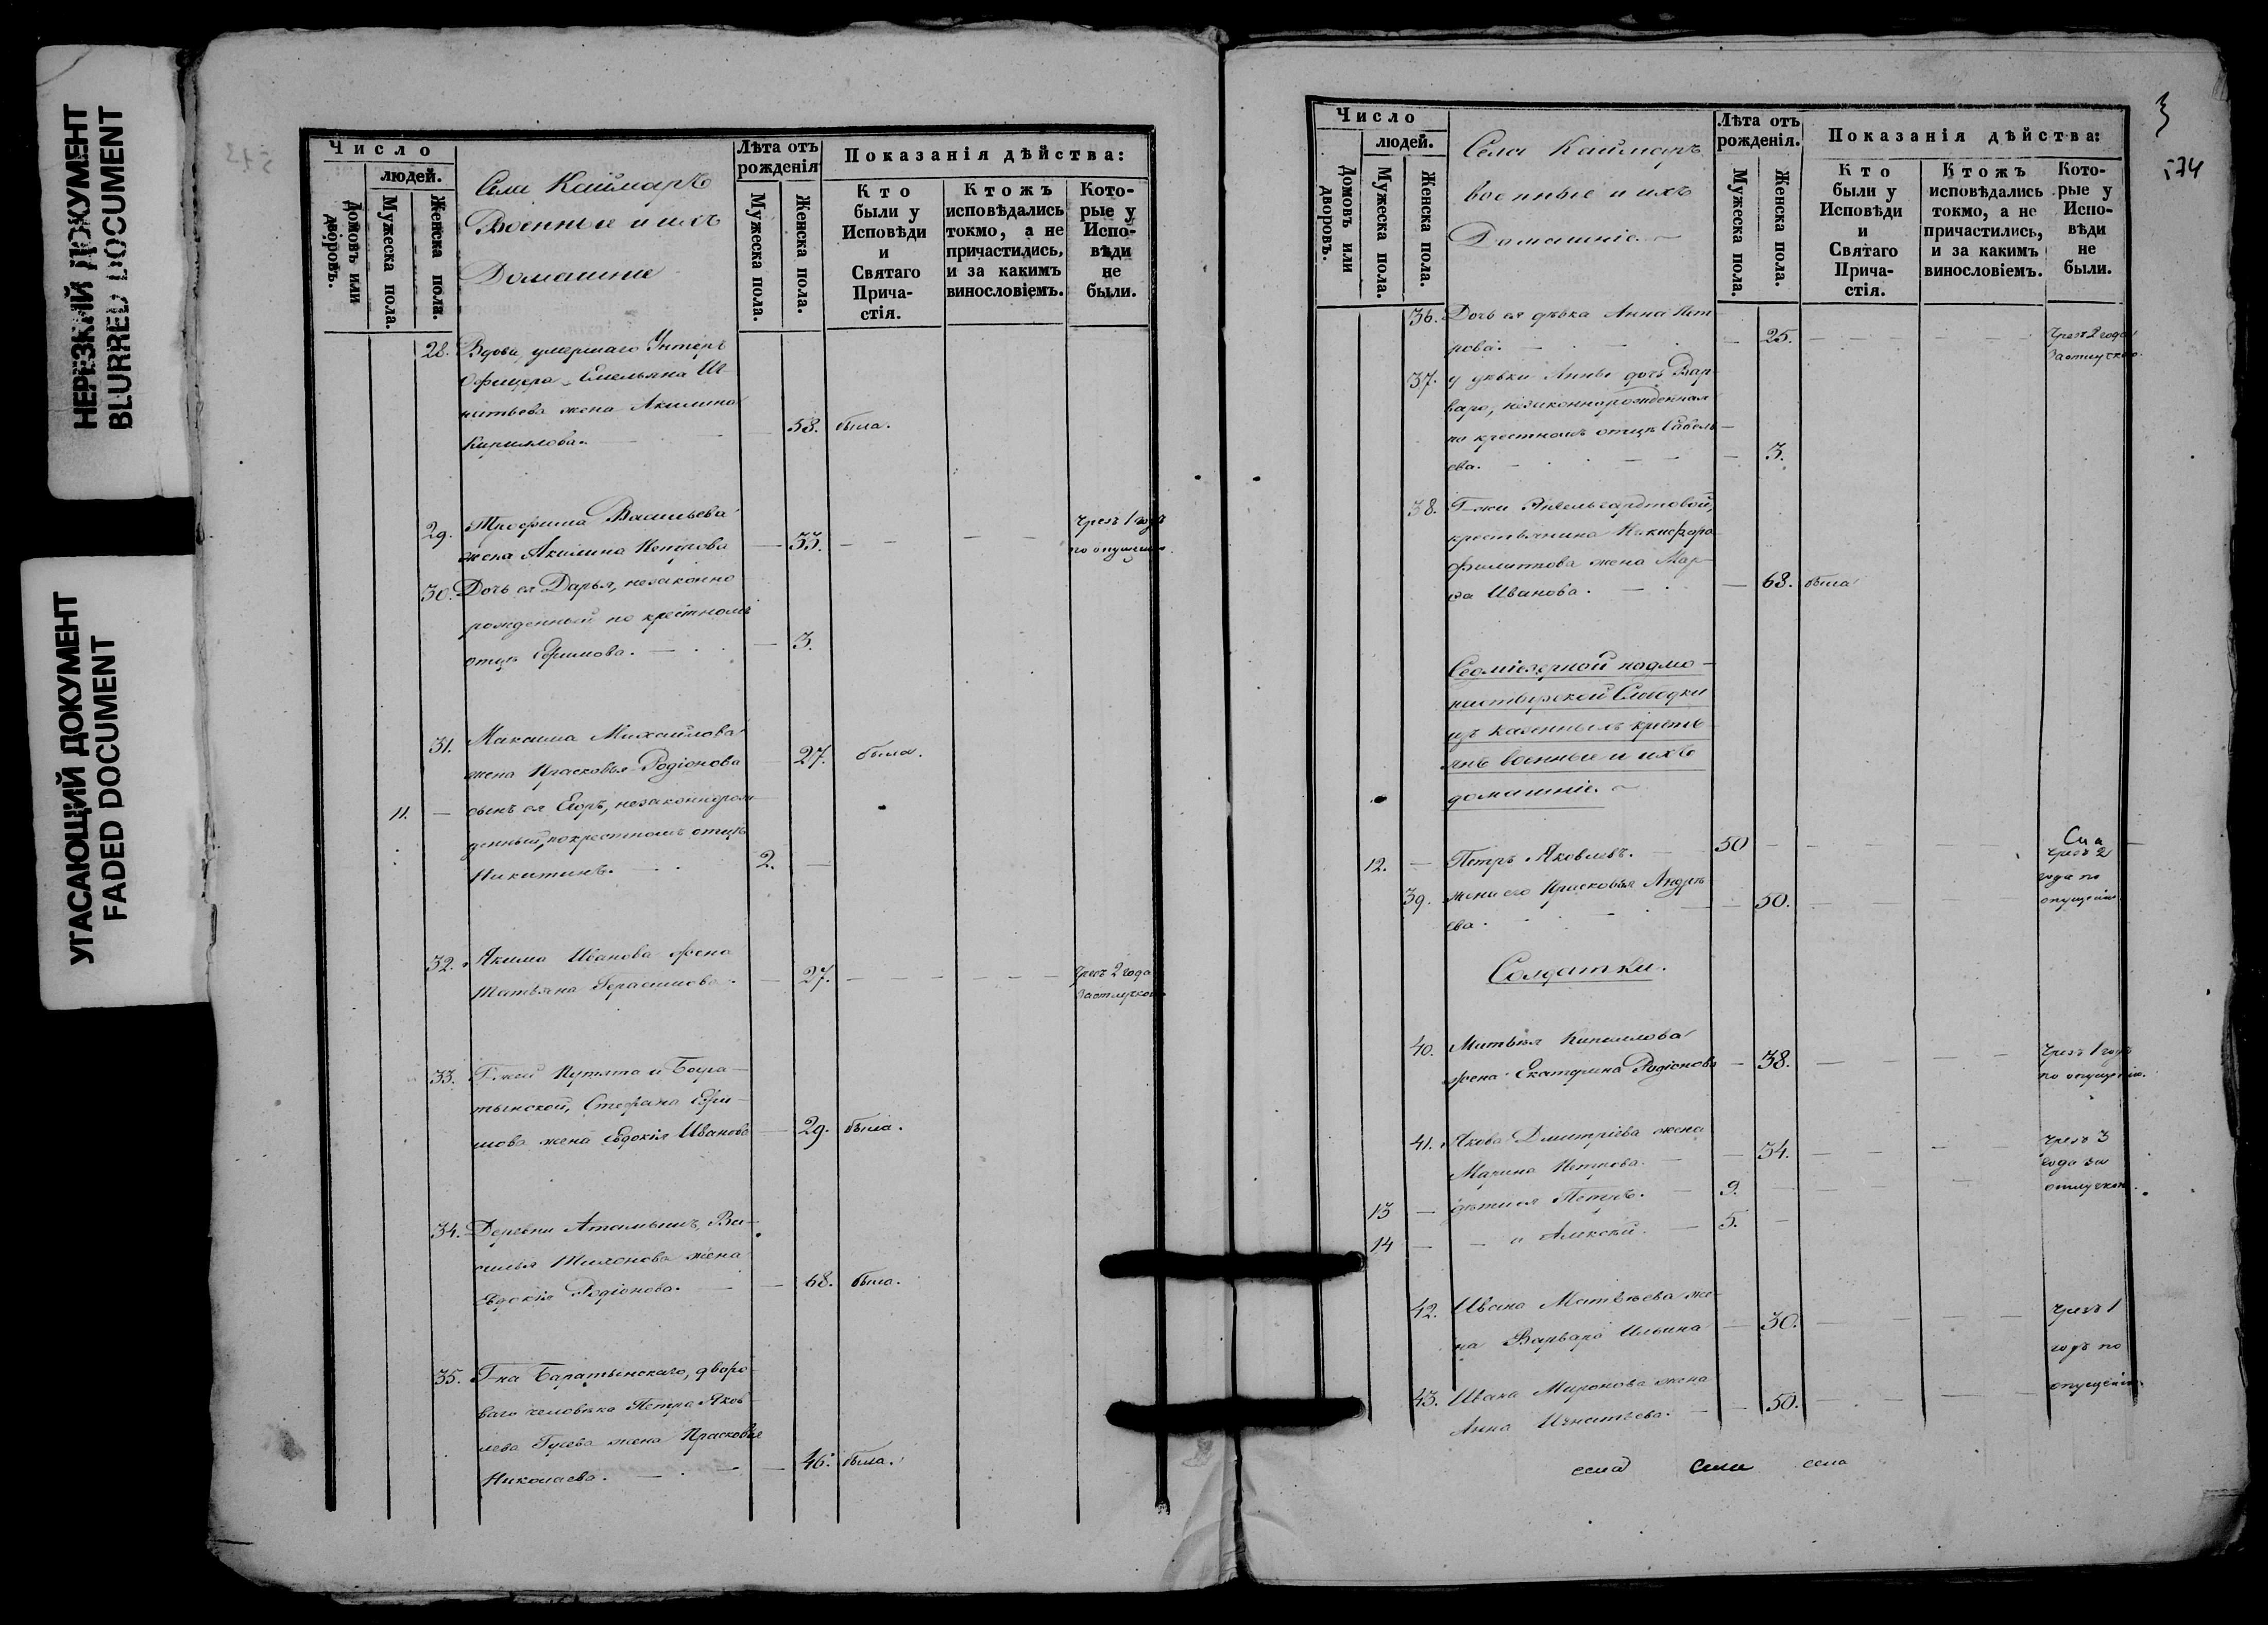 НЕРЕЗКИЙ ДОКУМЕНТ
BLURRED DOCUMENT
УГАСАЮЩИЙ ДОКУМЕНТ
FADED DOCUMENT
Число
людей.
Домовъ или дворовъ.
Мужеска пола.
Женска пола.
Села Каймаръ
Военные и ихъ
Домашние
Лѣта отъ рожденія
Мужеска пола.
Женска пола.
Показанія дѣйства:
Кто были у Исповѣди и Святаго Причастія.
Ктожъ исповѣдались токмо, а не причастились, и за какимъ винословіемъ.
Которые у Исповѣди не были.
28. Вдова, умершаго Унтеръ
Офицера Емельяна Иг-
натьева жена Акилина
Кириллова. 58. была.
29. Трофима Васильева чрезъ 1 годъ
жена Акилина Петрова 33. по опущению
30. Дочь ея Дарья, незаконно
рожденный по крестномъ
отцѣ Ефимова. 3.
31. Максима Михайлова
жена Прасковья Родіонова 27. была.
11. сынъ ея Егоръ, незаконнорож-
денный, по крестномъ отцѣ
Никитинъ. 2.
32. Якима Иванова жена
Татьяна Герасимова. 27. чрезъ 2 года
за отлучкою.
33. Г-жей Путята и Бора-
тынской, Стефана Ефи-
мова жена Евдокія Иванова 29. была.
34. Деревни Атамышъ, Ва-
силья Тихонова жена
Евдокія Родіонова. 68. была.
35. Г-на Баратынскаго, дворо-
ваго человѣка Петра Яков-
лева Гусева жена Прасковья
Николаева. 46. была.
3
574
Число
людей.
Домовъ или дворовъ.
Мужеска пола.
Женска пола.
Села Каймаръ
военные и ихъ
Домашніе.
Лѣта отъ рожденія.
Мужеска пола.
Женска пола.
Показанія дѣйства:
Кто были у Исповѣди и Святаго Причастія.
Ктожъ исповѣдались токмо, а не причастились, и за какимъ винословіемъ.
Которые у Исповѣди не были.
36. Дочь ея дѣвка Анна Пет-
рова. 25. чрезъ 2 года
за отлучкою.
37. у дѣвки Анны дочь Вар-
вара, незаконнорожденная
по крестномъ отцѣ Савель-
ева. 3.
38. Г-жи Энгельгардтовой,
крестьянина Никифора
Филиппова жена Мар-
фа Иванова. 68. была
Седміезерной подмо-
настырской Слободки
изъ казенныхъ кресть-
янъ военные и ихъ
домашніе.
12. Петръ Яковлевъ. 50
39. жена его Прасковья Андре-
ева. 50. чрезъ 2
года по
опущению
Солдатки.
40. Матвѣя Кириллова
жена Екатерина Родіонова 38. чрезъ 1 годъ
по опущению.
41. Якова Дмитріева жена
Марина Петрова. 34. чрезъ 3
года за
отлучкою.
13 дѣти ея Петръ. 9.
14 и Алексѣй. 5.
42. Ивана Матвѣева же-
на Варвара Ильина 30. чрезъ 1
годъ по
опущению.
43. Ивана Миронова жена
Анна Игнатьева. 50.
села села села